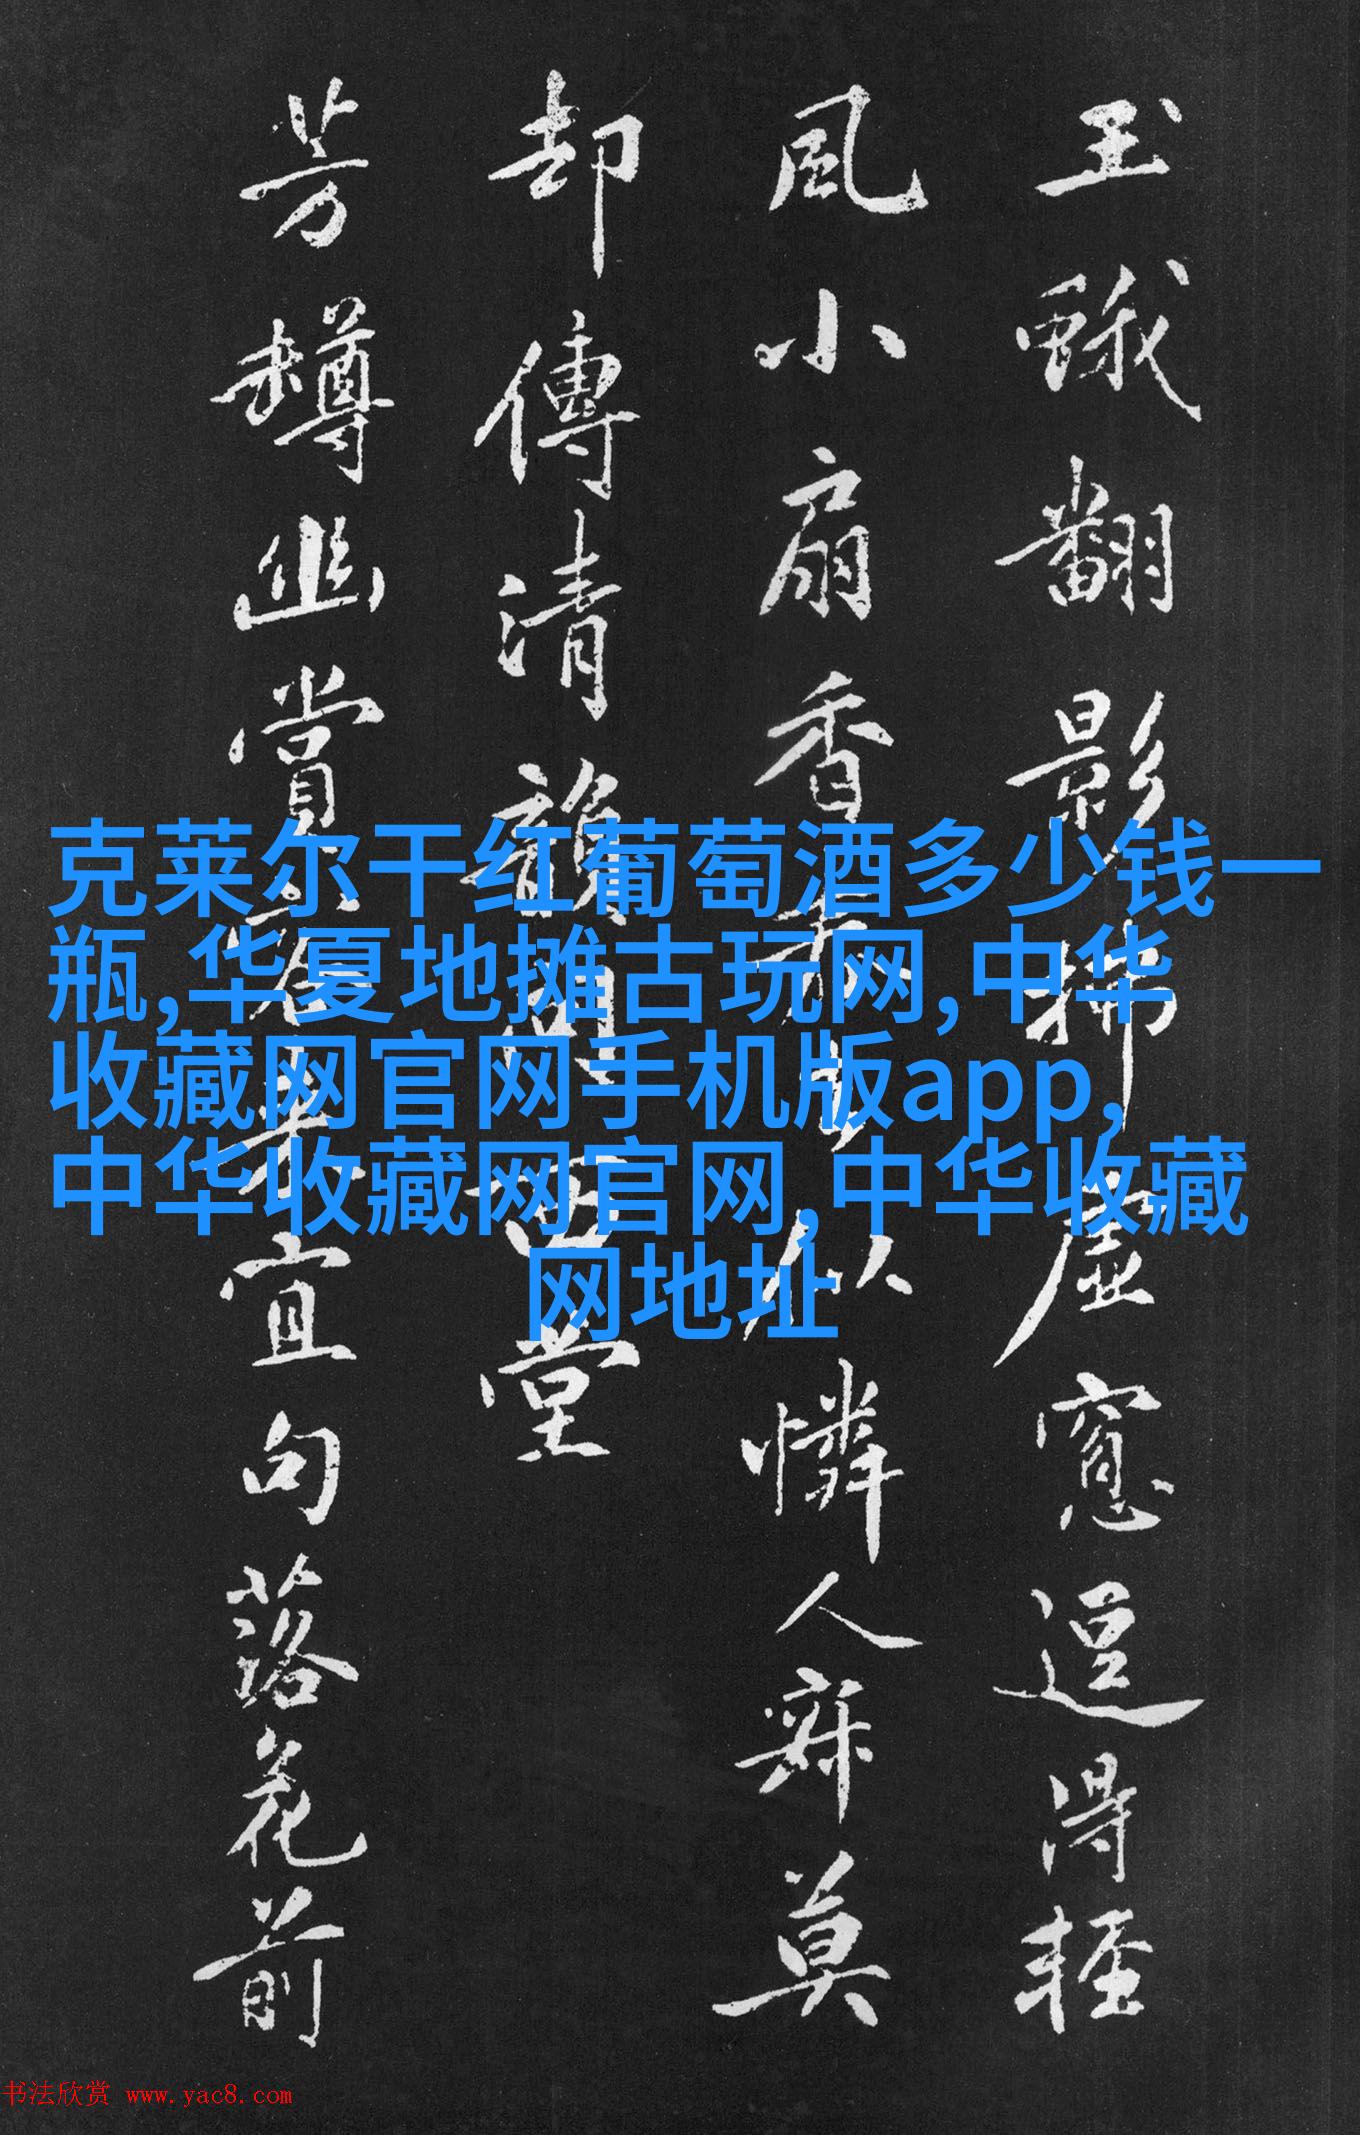 玉蛾翻影拂虛窓逗得輕
風小扇香似憐人寐莫
却傳清韻西堂
芳樽幽賞客來宜句落花前
克莱尔干红葡萄酒多少钱一
瓶,华夏地摊古玩网,中华
收藏网官网手机版app,
中华收藏网官网,中华收藏
网地址
书法欣赏 www.yac8.com